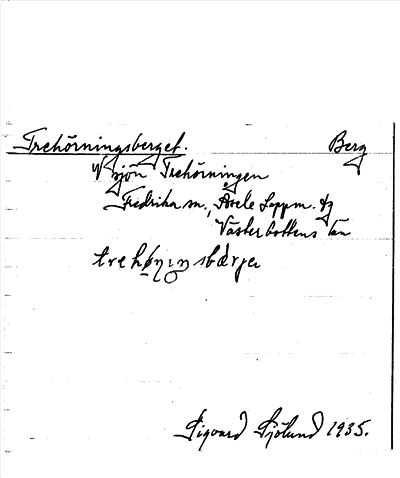 Trehörningsberget. Berg
V sjön Trehörningen
Fredrika sn., Åsele Lappm. tg
Västerbottens län
Sigvard Sjölund 1935.